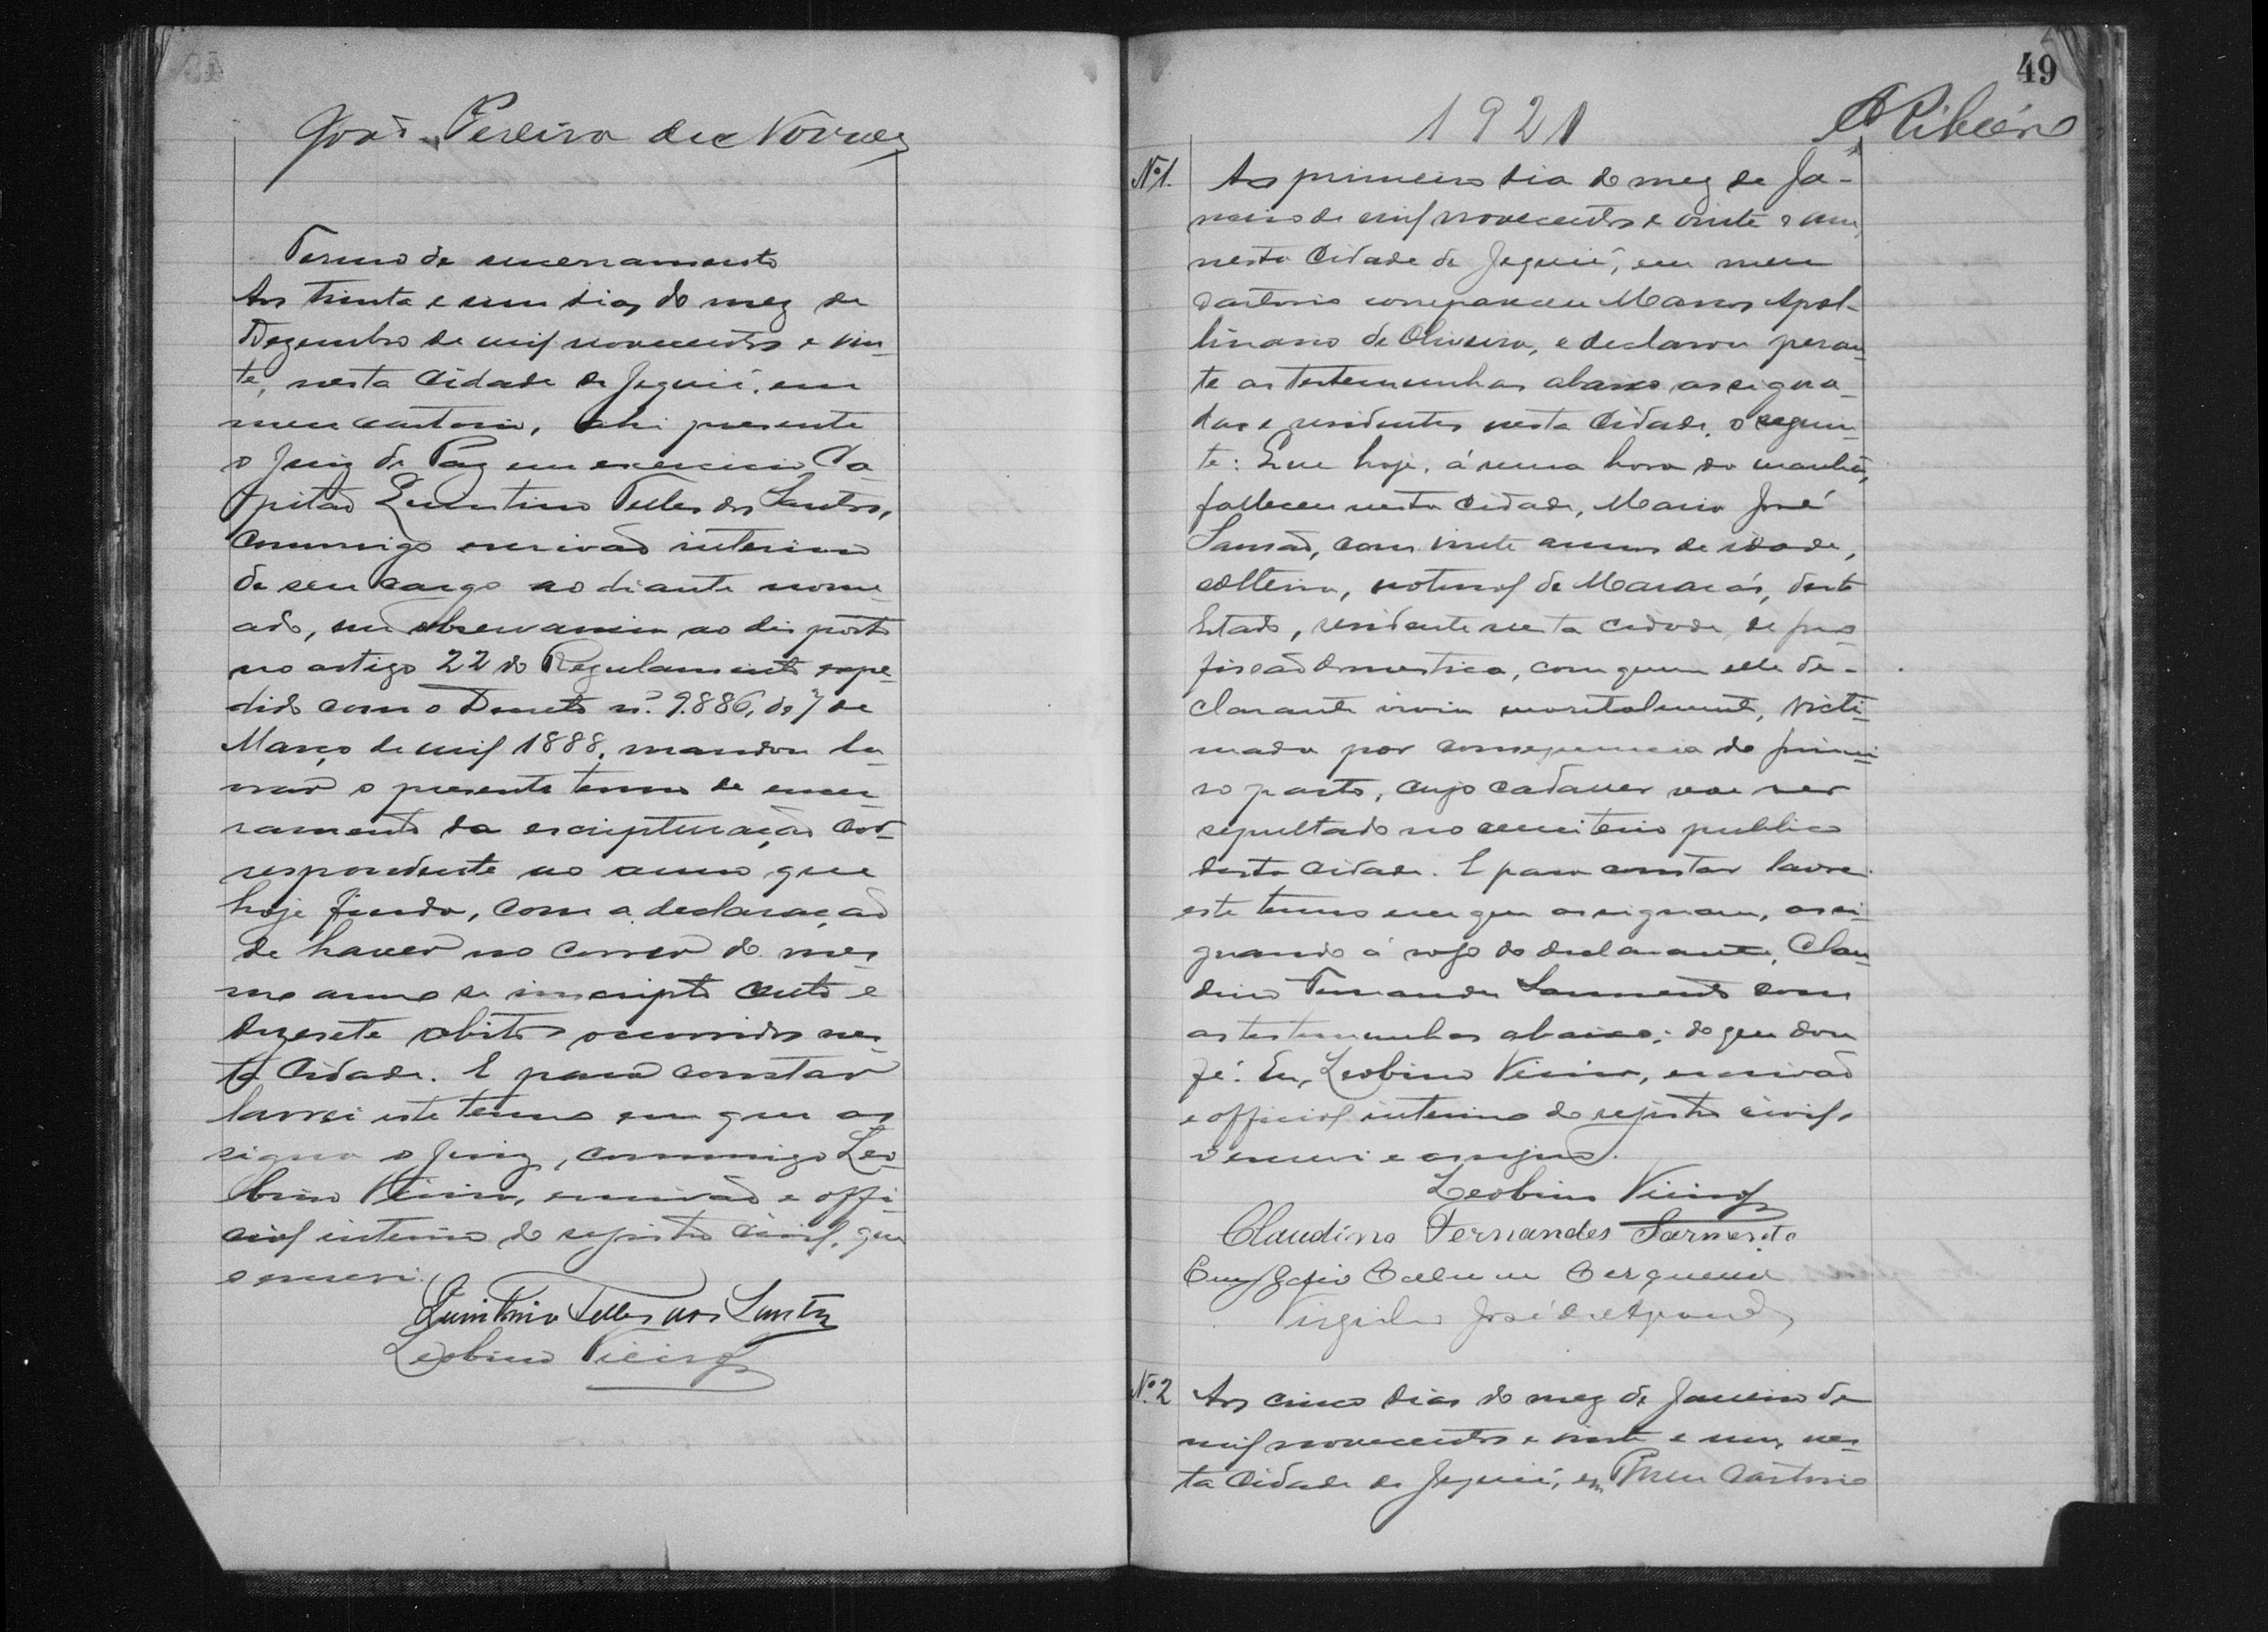 João Pereira de
Termo de encerramento
Aos trinta e um dias do mez de
Dezembro de mil novecentos e vin-
te, nesta Cidade de Jequié, em
meu cartorio, ahi presente
o Juiz de Paz em exercicio Ca-
pitão Quintino Telles dos Santos,
commigo escrivão interino
de seu cargo ao diante nome-
ado, em observancia ao disposto
no artigo 22 do Regulamento expe-
dido com o Decreto n.º 9.886, de 7 de
Março de mil 1888, mandou la-
vrar o presente termo de encer-
ramento da escripturação cor-
respondente ao anno que
hoje finda, com a declaração
de haver no correr do mes-
mo anno se inscripto cento e
dezesete obitos occorridos nes-
ta Cidade. E para constar
lavrei este termo em que as-
signa o Juiz, commigo Leo-
bino Vieira, escrivão e offi-
cial interino do registro civil, que
o escrevi.
Quintino Telles dos Santos
Leobino Vieira
49
1921
Ribeiro
Nº 1.
Ao primeiro dia do mez de Ja-
neiro de mil novecentos e vinte e um,
nesta Cidade de Jequié, em meu
cartorio compareceu Marcos Apol-
linario de Oliveira, e declarou peran-
te as testemunhas abaixo assigna-
das e residentes nesta Cidade, o seguin-
te: Que hoje, á uma hora da manhã,
falleceu nesta Cidade, Maria José
Sansão, com vinte annos de idade,
solteira, natural de Maracás, deste
Estado, residente nesta cidade, de pro-
fissão domestica, com quem elle de-
clarante vivia maritalmente, victi-
mada por consequencia do primei-
ro parto, cujo cadaver vae ser
sepultado no cemiterio publico
desta Cidade. E para constar lavrei
este termo em que assignam, assi-
gnando á rogo do declarante, Clau-
dino Fernandes Sarmento com
as testemunhas abaixo; do que dou
fé. Eu, Leobino Vieira, escrivão
e official interino do registro civil,
o escrevi e assigno.
Leobino Vieira
Claudino Fernandes Sarmento
Cerqueira
Virgilio José de
Nº 2
Aos cinco dias do mez de Janeiro de
mil novecentos e vinte e um, nes-
ta Cidade de Jequié, em meu Cartorio